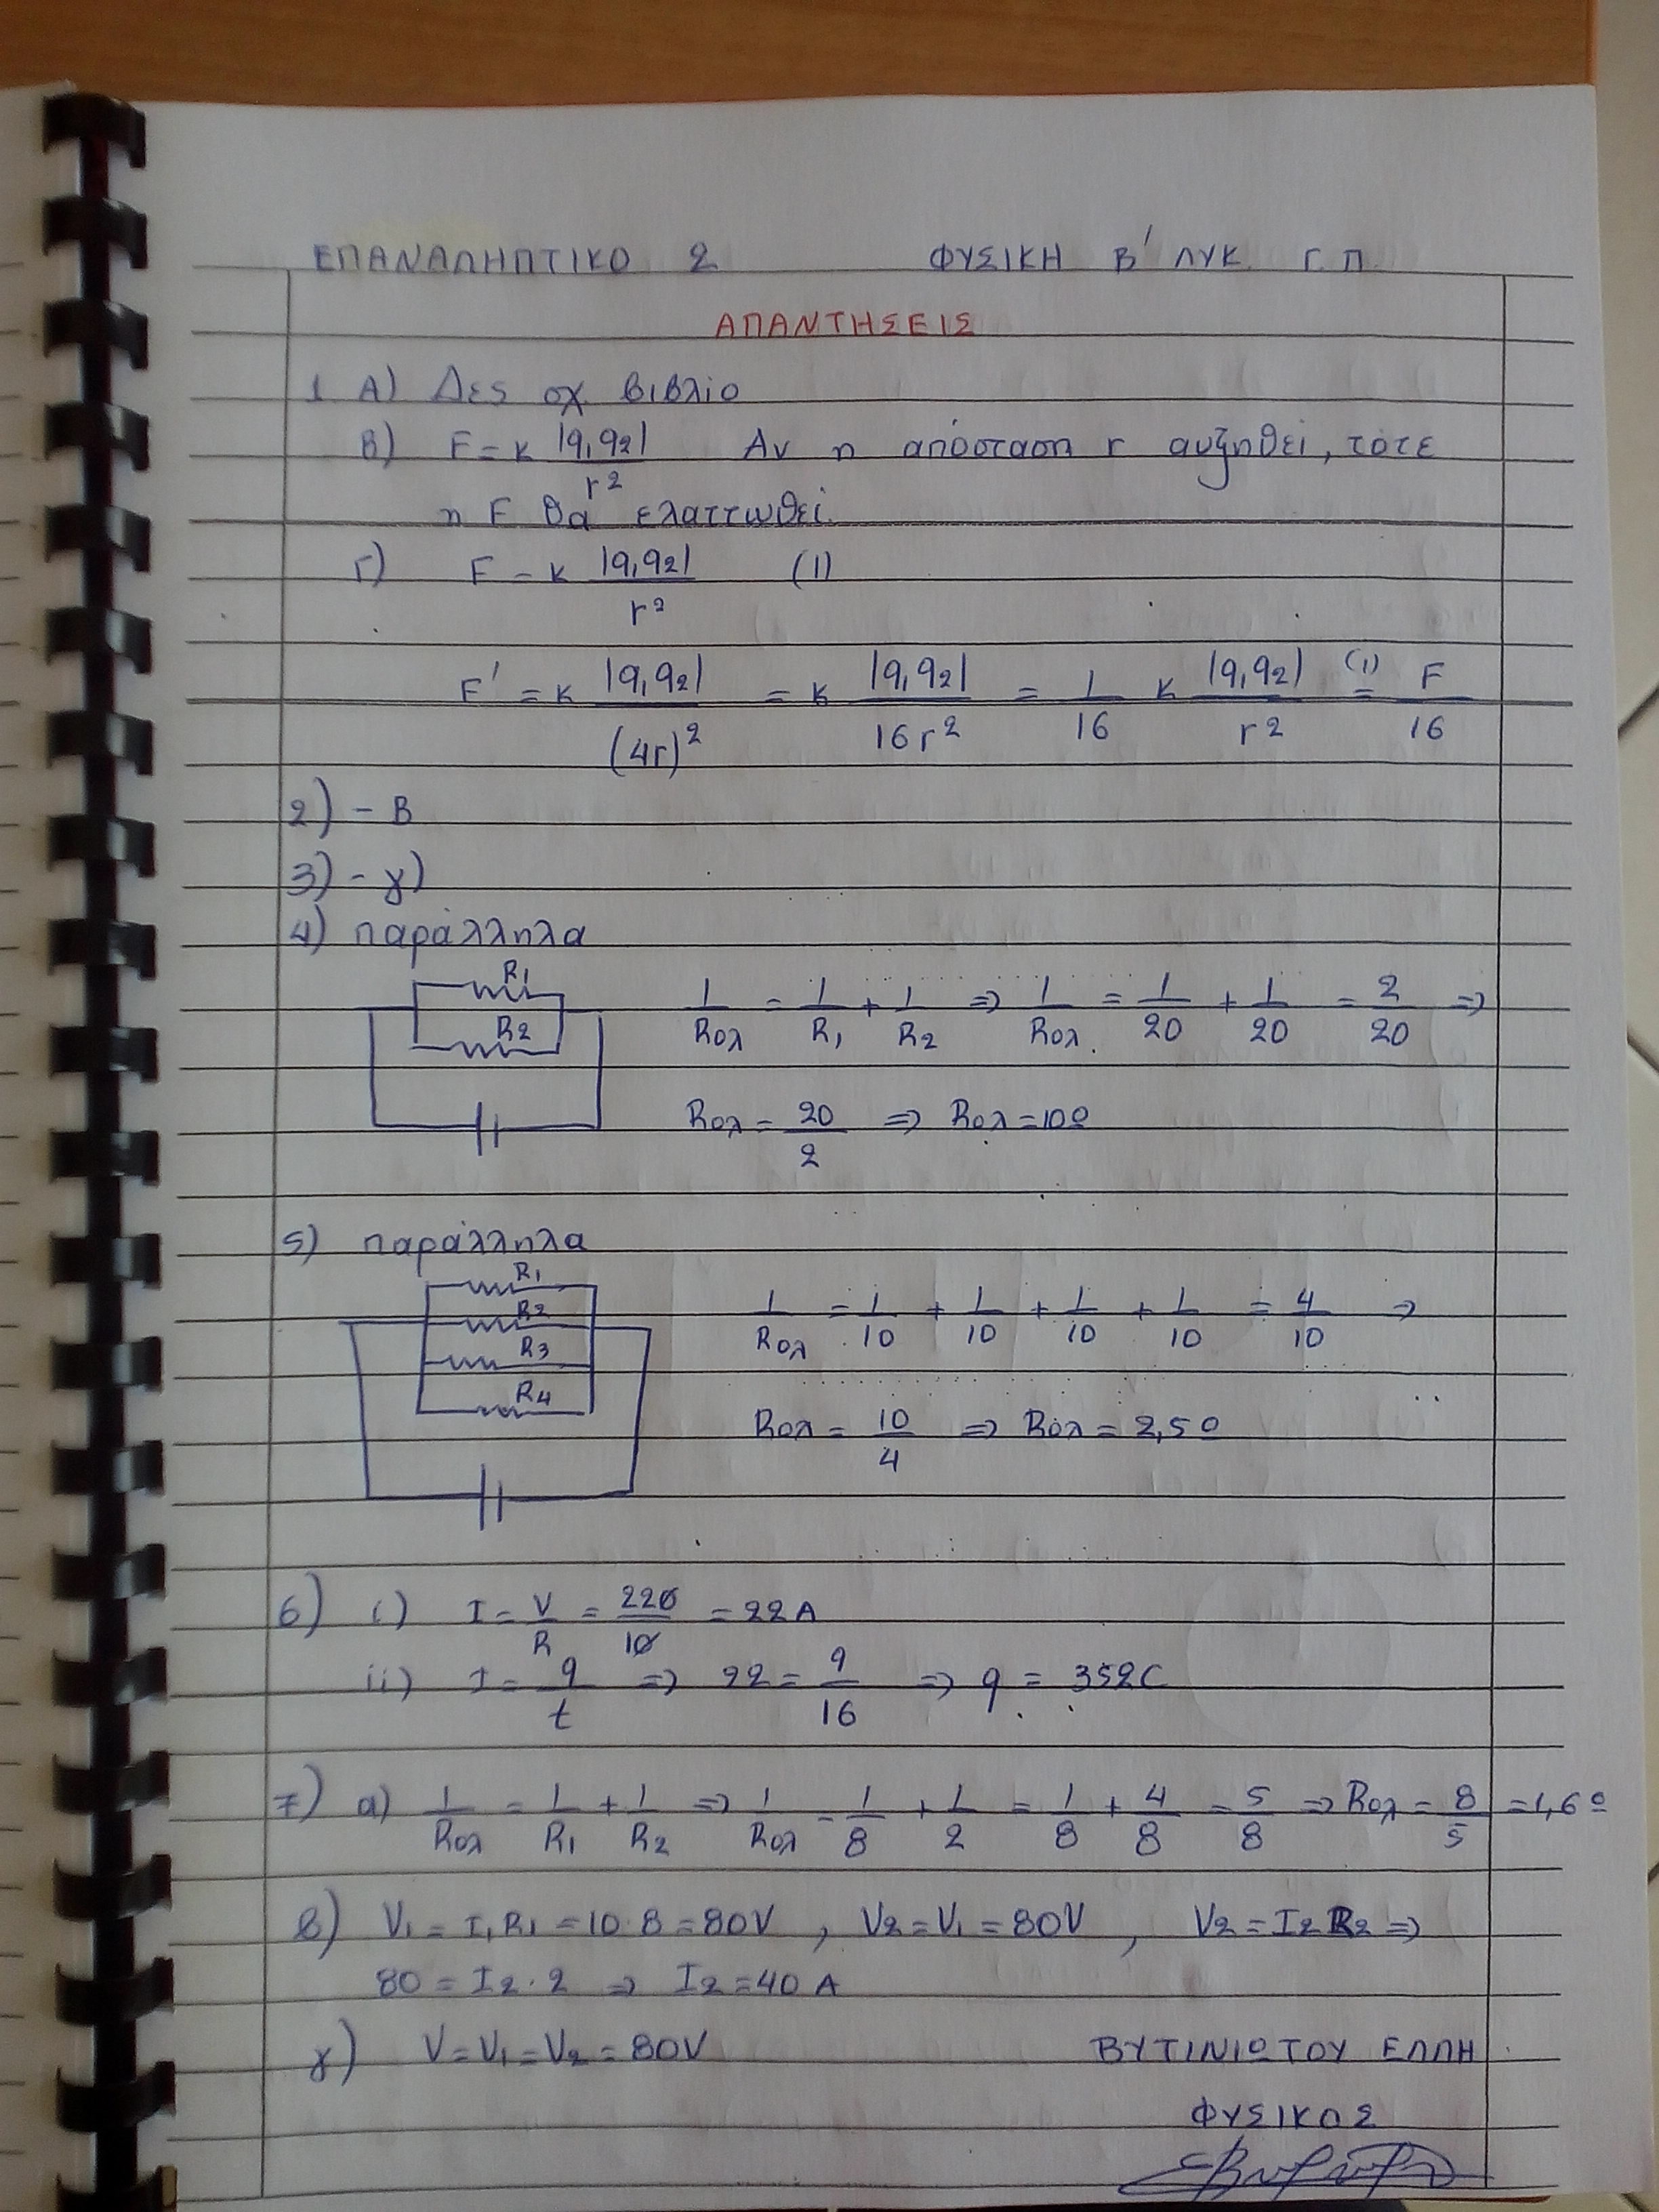 ΕΠΑΝΑΛΗΠΤΙΚΟ 2 ΦΥΣΙΚΗ Β' ΛΥΚ Γ.Π.
ΑΠΑΝΤΗΣΕΙΣ
1 Α) Δες σχ. βιβλίο
Β) F = κ |q₁q₂| / r² Αν η απόσταση r αυξηθεί, τότε
η F θα ελαττωθεί.
Γ) F = κ |q₁q₂| / r² (1)
F' = κ |q₁q₂| / (4r)² = κ |q₁q₂| / 16r² = 1/16 κ |q₁q₂| / r² (1)= F/16
2) - Β
3) - γ)
4) παράλληλα
R₁
R₂
1/Rολ = 1/R₁ + 1/R₂ ⇒ 1/Rολ = 1/20 + 1/20 = 2/20 ⇒
Rολ = 20/2 ⇒ Rολ = 10Ω
5) παράλληλα
R₁
R₂
R₃
R₄
1/Rολ = 1/10 + 1/10 + 1/10 + 1/10 = 4/10 ⇒
Rολ = 10/4 ⇒ Rολ = 2,5Ω
6) i) I = V/R = 220/10 = 22 A
ii) I = q/t ⇒ 22 = q/16 ⇒ q = 352C
7) α) 1/Rολ = 1/R₁ + 1/R₂ ⇒ 1/Rολ = 1/8 + 1/2 = 1/8 + 4/8 = 5/8 ⇒ Rολ = 8/5 = 1,6Ω
β) V₁ = I₁R₁ = 10·8 = 80V, V₂ = V₁ = 80V, V₂ = I₂R₂ ⇒
80 = I₂·2 ⇒ I₂ = 40 A
γ) V = V₁ = V₂ = 80V ΒΥΤΙΝΙΩΤΟΥ ΕΛΛΗ
ΦΥΣΙΚΟΣ